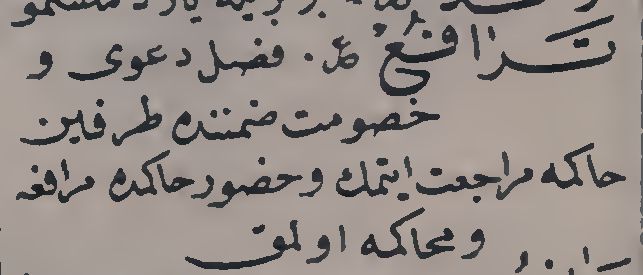 ترافع ع. فصل دعوى و
خصومت ضمننده طرفين
حاكمه مراجعت ايتمك و حضور حاكمده مرافعه
و محاكمه اولمق